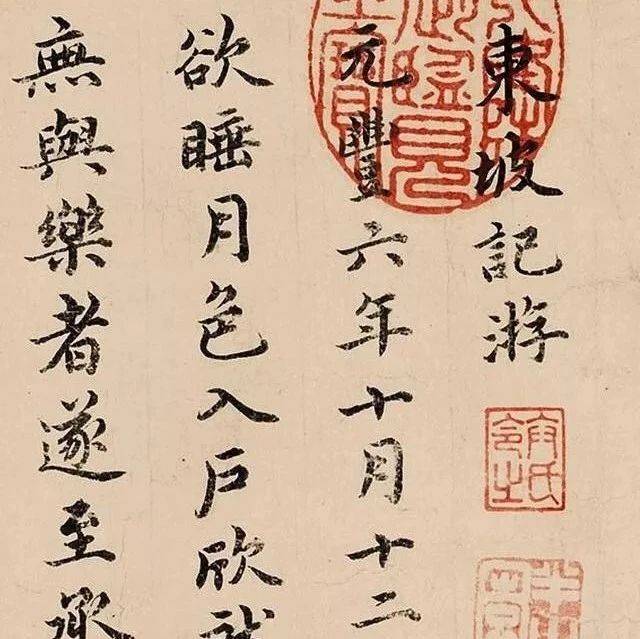 東坡記游
元豐六年十月十二
欲睡月色入户欣
無與樂者遂至承